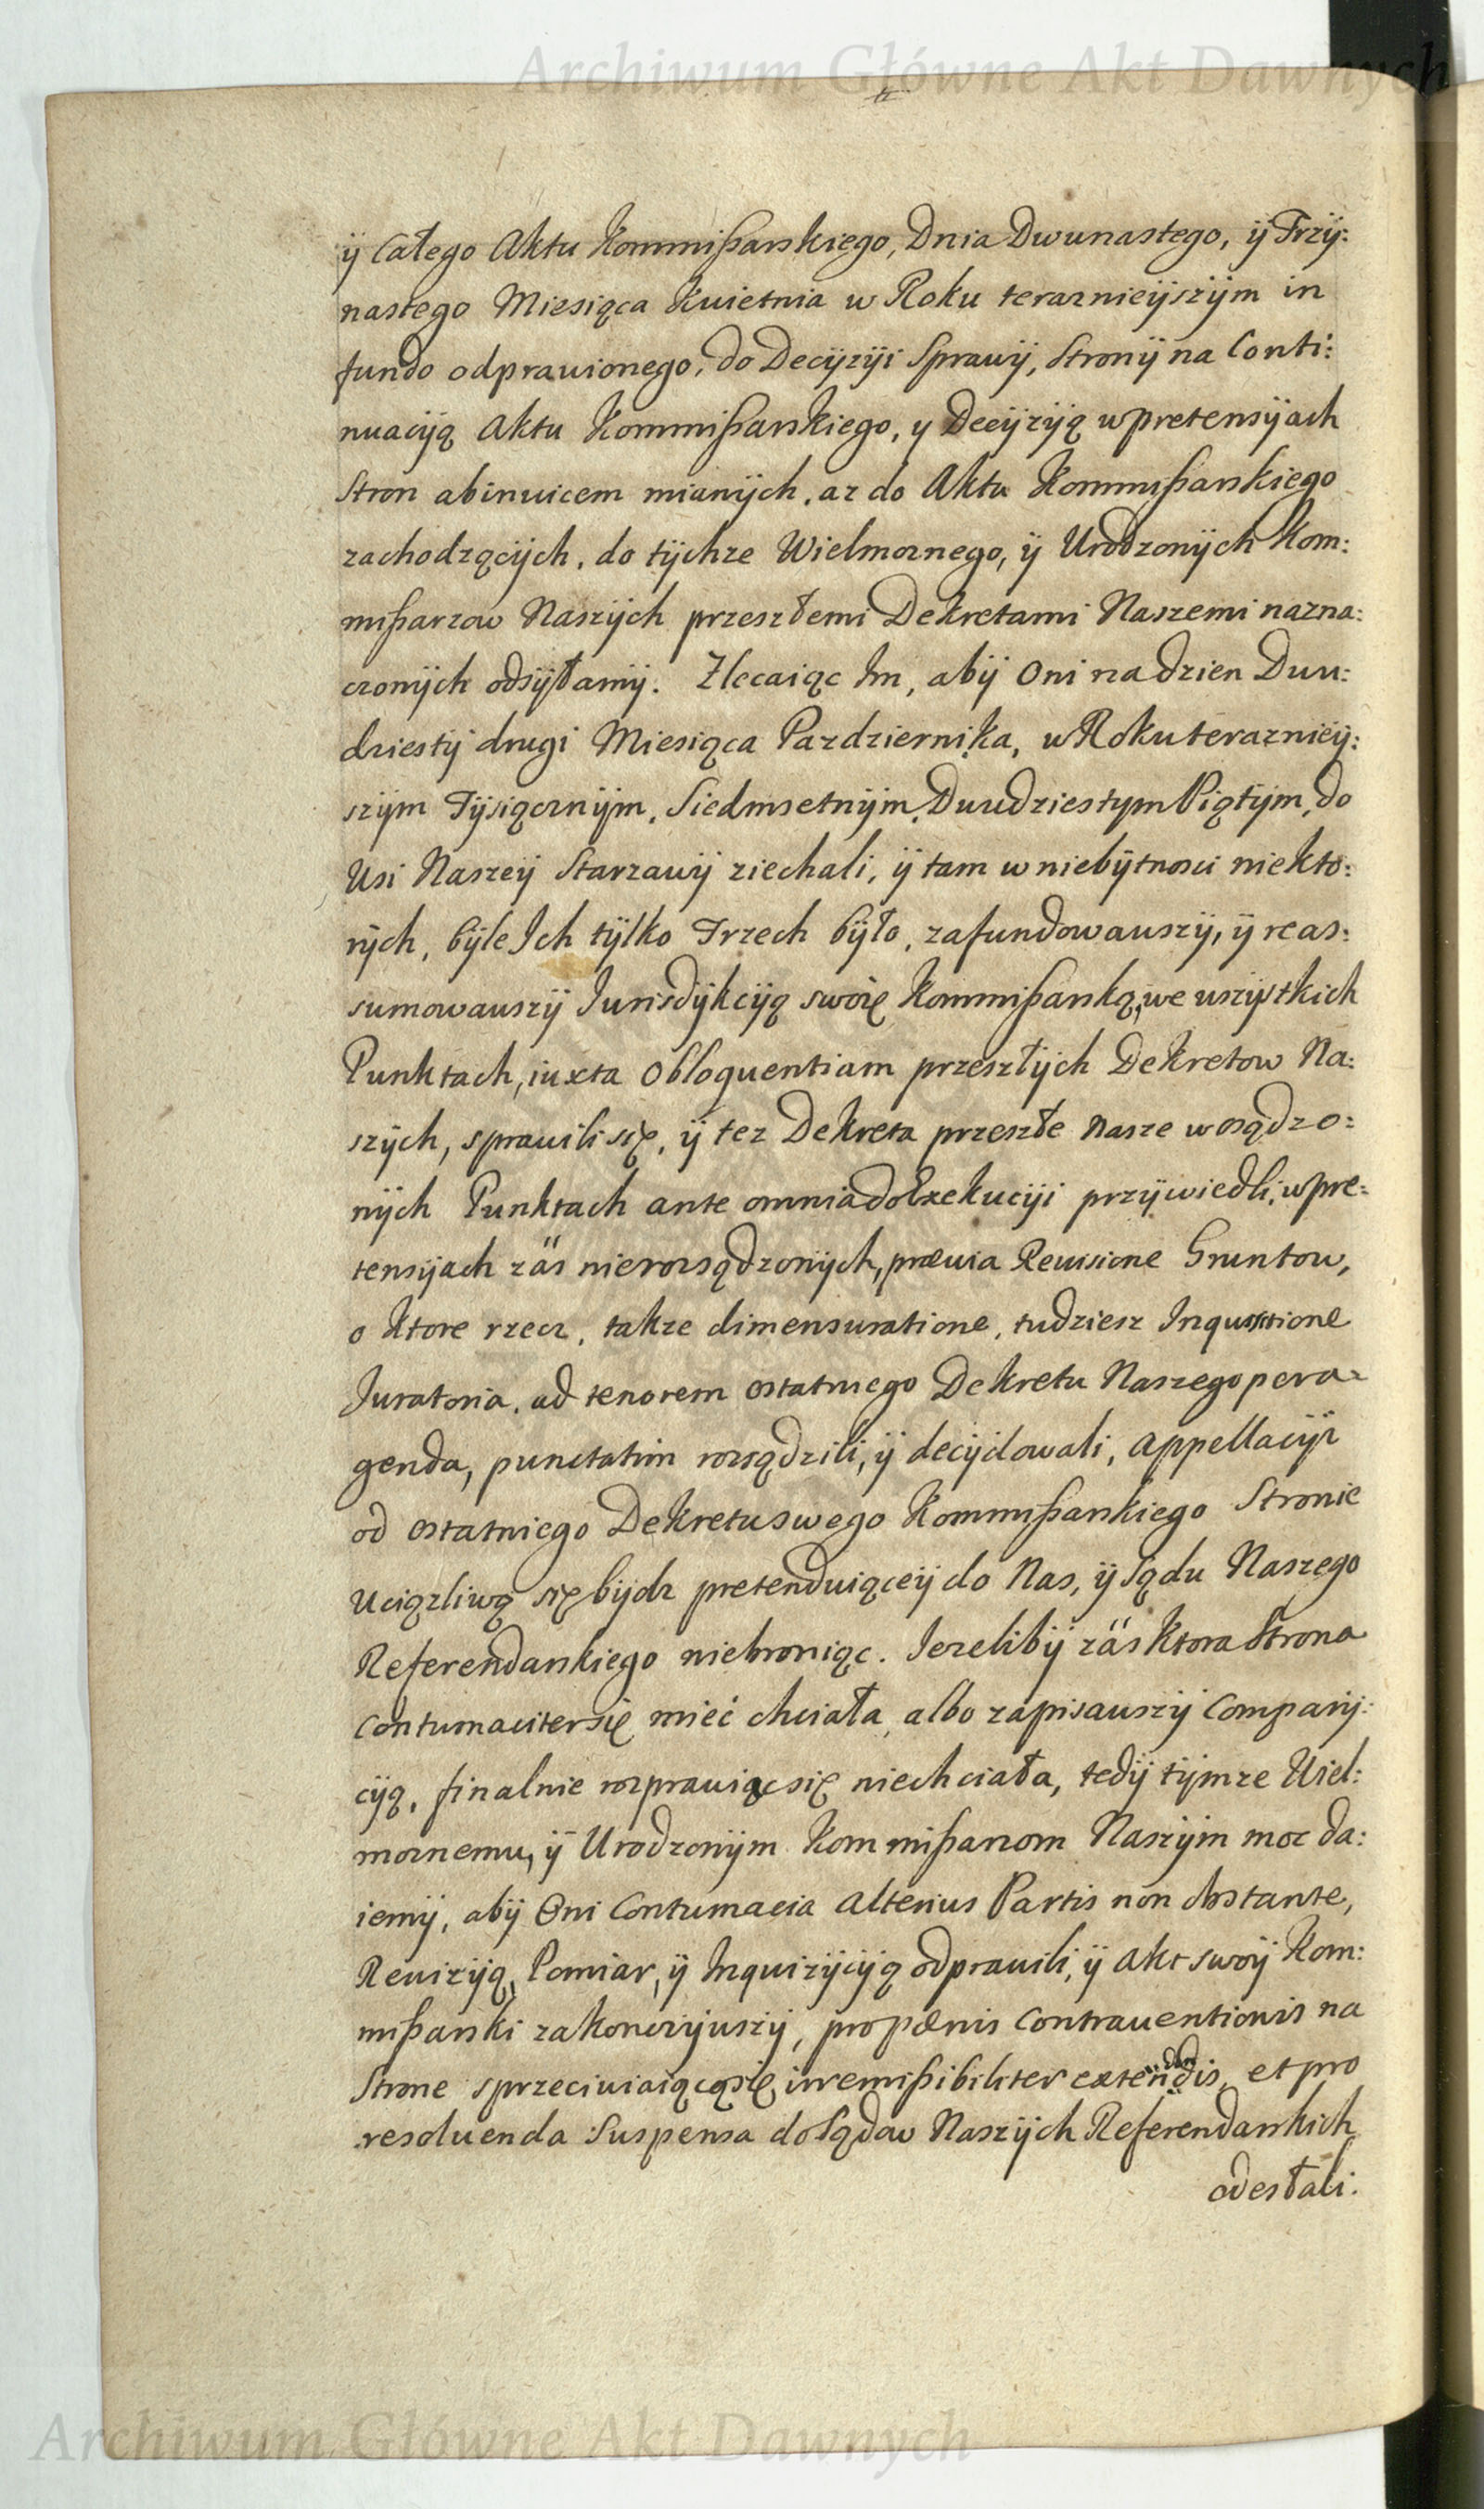 Archiwum Główne Akt Dawnych
ÿ Całego Aktu Kommißarskiego, Dnia Dwunastego, ÿ Trzÿ:
nastego Miesiąca Kwietnia w Roku terazniejszÿm in
fundo odprawionego, do Decÿzÿi Sprawÿ, Stronÿ na Conti:
nuacÿą Aktu Kommißarskiego, y Decÿzÿą w pretensÿach
Stron abinvicem mianÿch, az do Aktu Kommißarskiego
zachodzącÿch, do tÿchze Wielmoznego, ÿ Urodzonÿch Kom:
mißarzow Naszÿch przeszłemi Dekretami Naszemi nazna:
czonÿch odsÿłamÿ. Zlecaiąc Im, abÿ Oni na dzien Dwu:
dziestÿ drugi Miesiąca Pazdziernika, w Roku terazniéÿ:
szÿm Tÿsiącznÿm, Siedmsetnÿm, Dwudziestym Piątÿm, do
Wsi Naszeÿ Starzawÿ ziechali, ÿ tam w niebÿtnosci niekto:
rÿch, bÿle Ich tÿlko Trzech bÿło, zafundowawszÿ, ÿ reas:
sumowawszÿ Jurisdÿkcÿą swoię Kommißarską, we wszÿstkich
Punktach, iuxta Obloquentiam przeszłÿch Dekretow Na:
szÿch, sprawili się, ÿ tez Dekreta przeszłe Nasze w osądzo:
nÿch Punktach ante omnia do Exekucÿi przÿwiedli, w pre:
tensÿach zäs nierozsądzonÿch, prævia Revisione Gruntow,
o ktore rzecz, takze dimensuratione, tudziesz Inquisitione
Juratoria, ad tenorem ostatniego Dekretu Naszego pera:
genda, punctatim rozsądzili, ÿ decÿdowali, Appellacÿi
od ostatniego Dekretu swego Kommißarskiego Stronie
Uciązliwą się bÿdz pretenduiąceÿ do Nas, ÿ Sądu Naszego
Referendarskiego niebroniąc. Iezelibÿ zäs ktora Strona
Contumaciter się mieć chciała, albo zapisawszÿ Comparÿ:
cÿą, finalnie rozprawiąc się niechciała, tedÿ tÿmze Wiel:
moznemu, ÿ Urodzonÿm Kommißarzom Naszÿm moc da:
iemÿ, abÿ Oni Contumacia Alterius Partis non obstante,
Rewizÿą, Pomiar, ÿ Inquizÿcÿą odprawili, ÿ Akt swoÿ Kom:
mißarski zakonczÿwszÿ, pro pœnis Contraventionis na
Stronę sprzeciwiaiącąsię irremißibiliter extendendis, et pro
resolvenda Suspensa do Sądow Naszÿch Referendarskich
odesłali.
Archiwum Główne Akt Dawnych